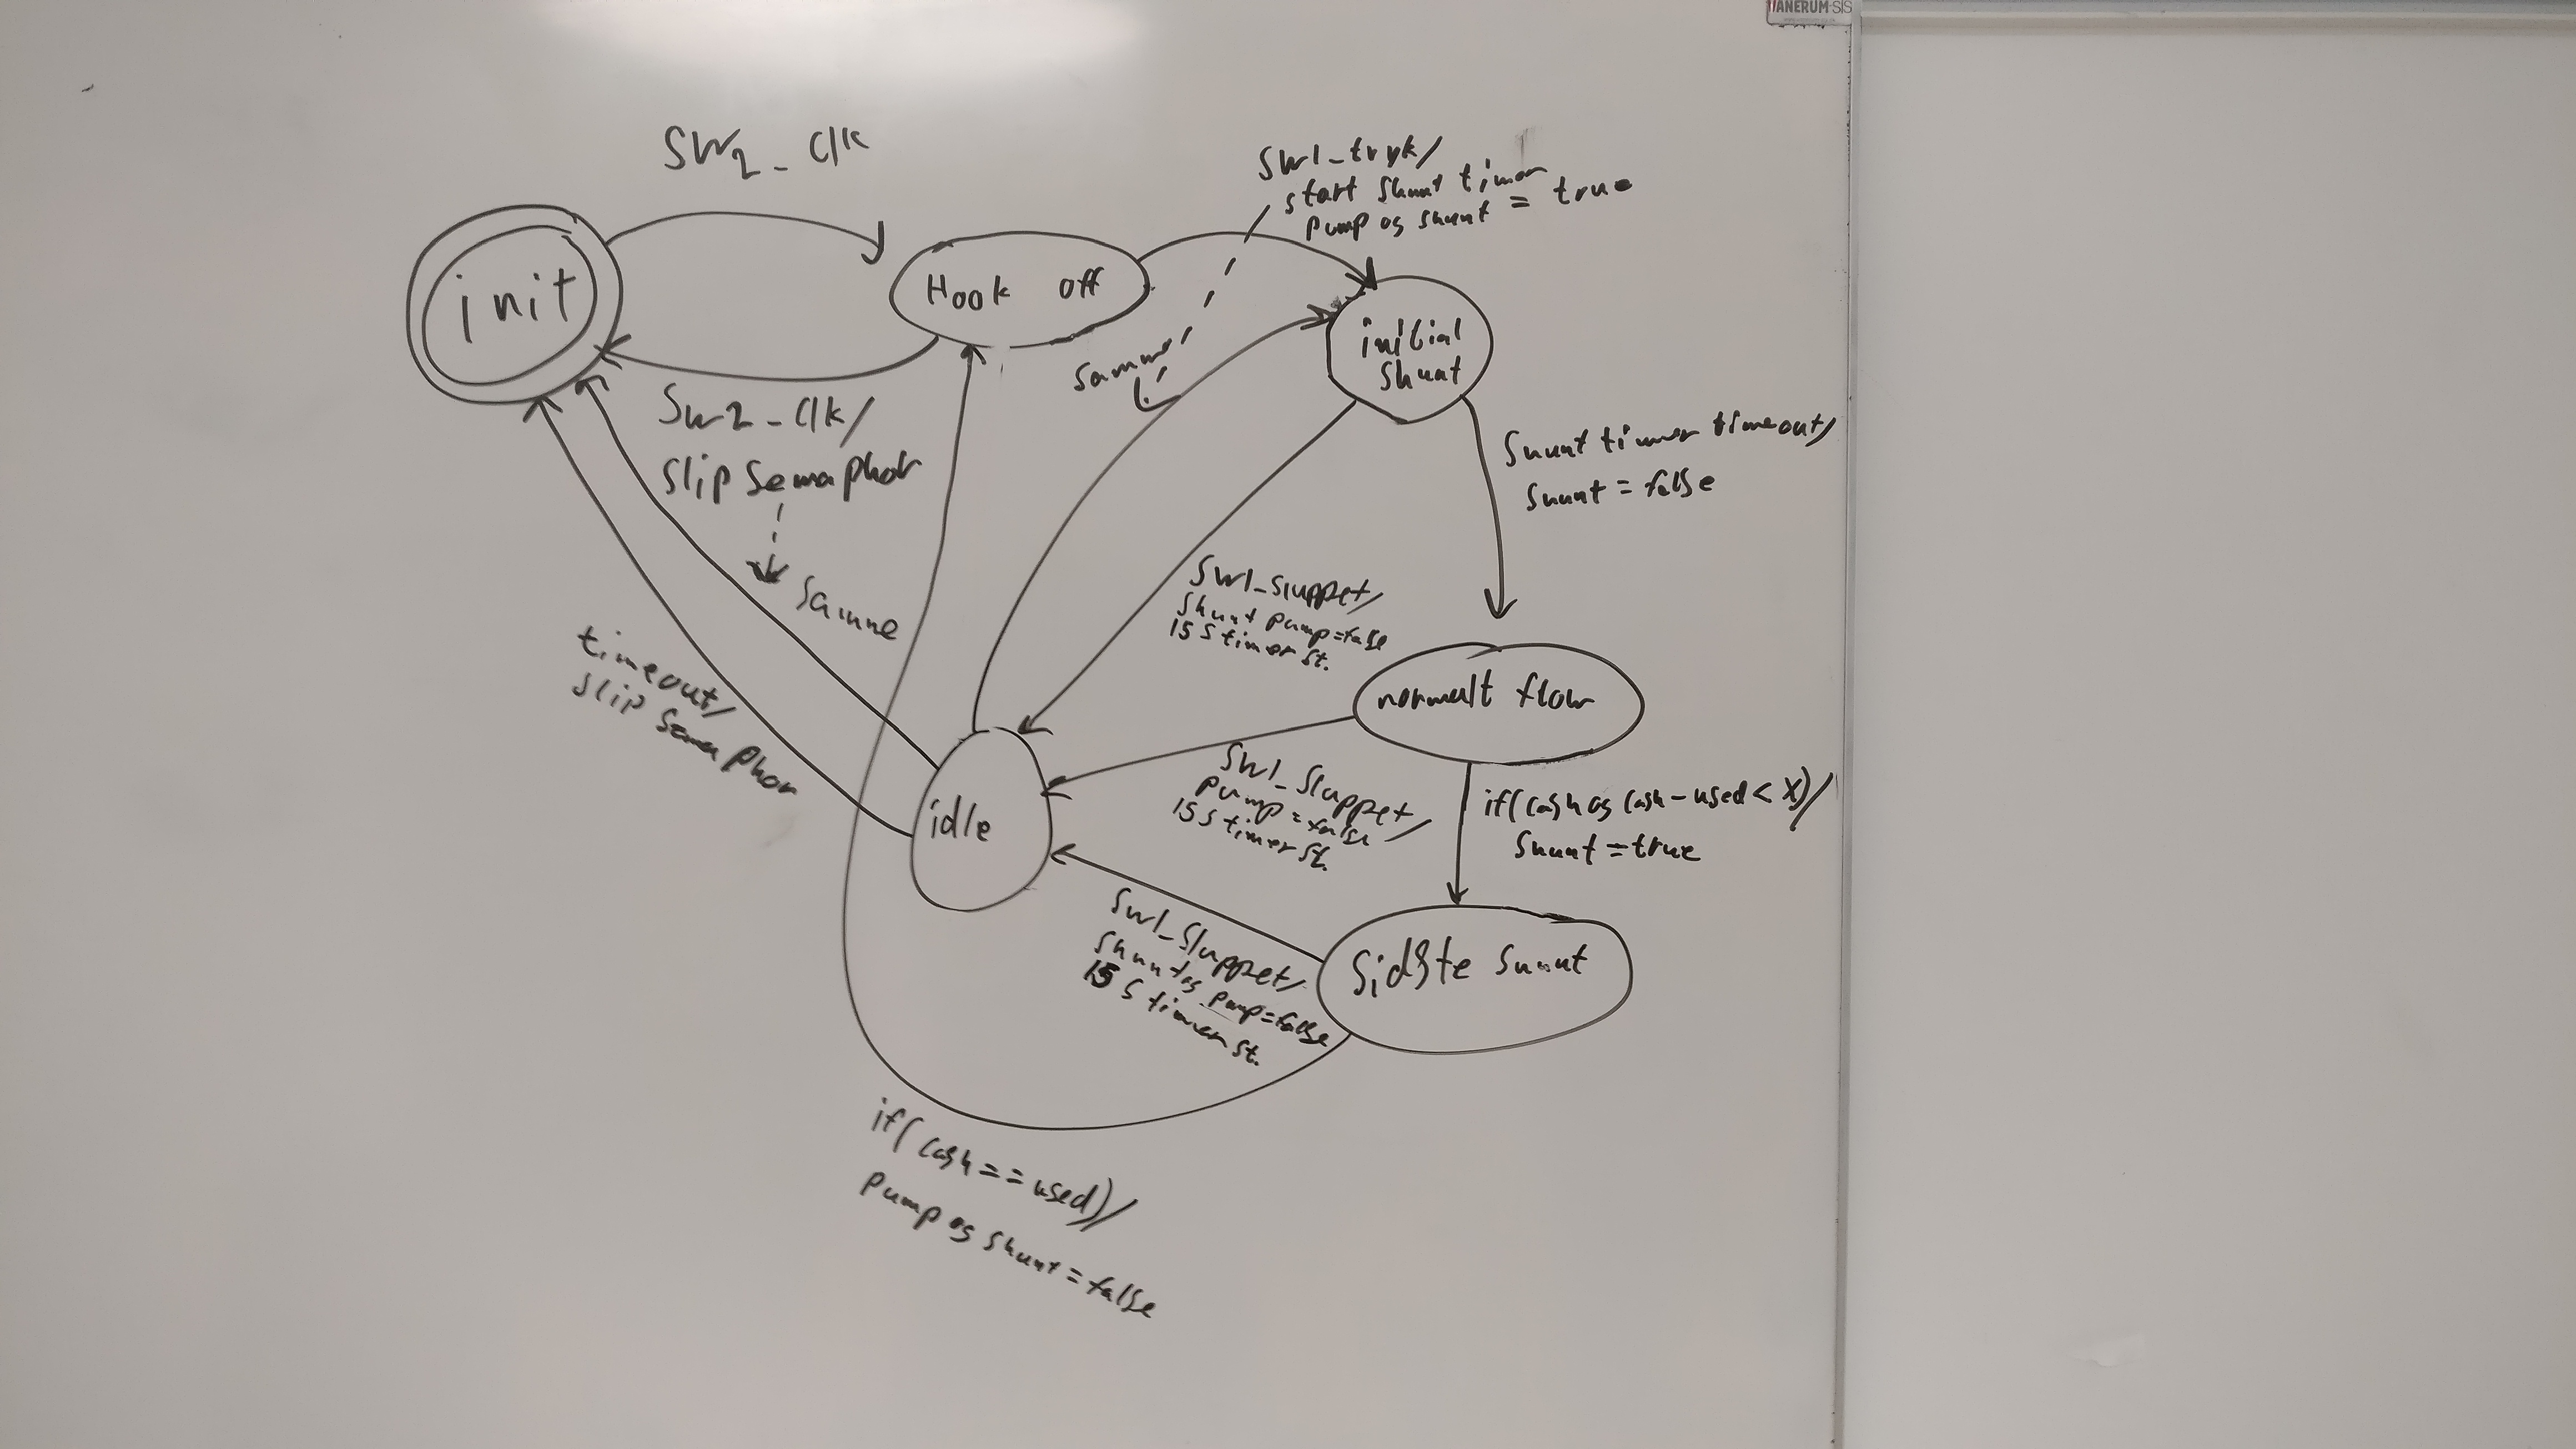 TANERUM·SIS
SW2_Clk
SW1_tryk/
start shunt timer
pump og shunt = true
init
Hook off
initial
shunt
samme
SW2_Clk/
slip semaphor
samme
shunt timer timeout/
shunt = false
SW1_sluppet/
shunt pump=false
15 s timer st.
timeout/
slip semaphor
normalt flow
SW1_sluppet/
pump = false
15 s timer st.
if(cash og cash-used < X)/
shunt = true
idle
SW1_sluppet/
shunt og pump=false
15 s timer st.
sidste shunt
if(cash==used)/
pump og shunt = false